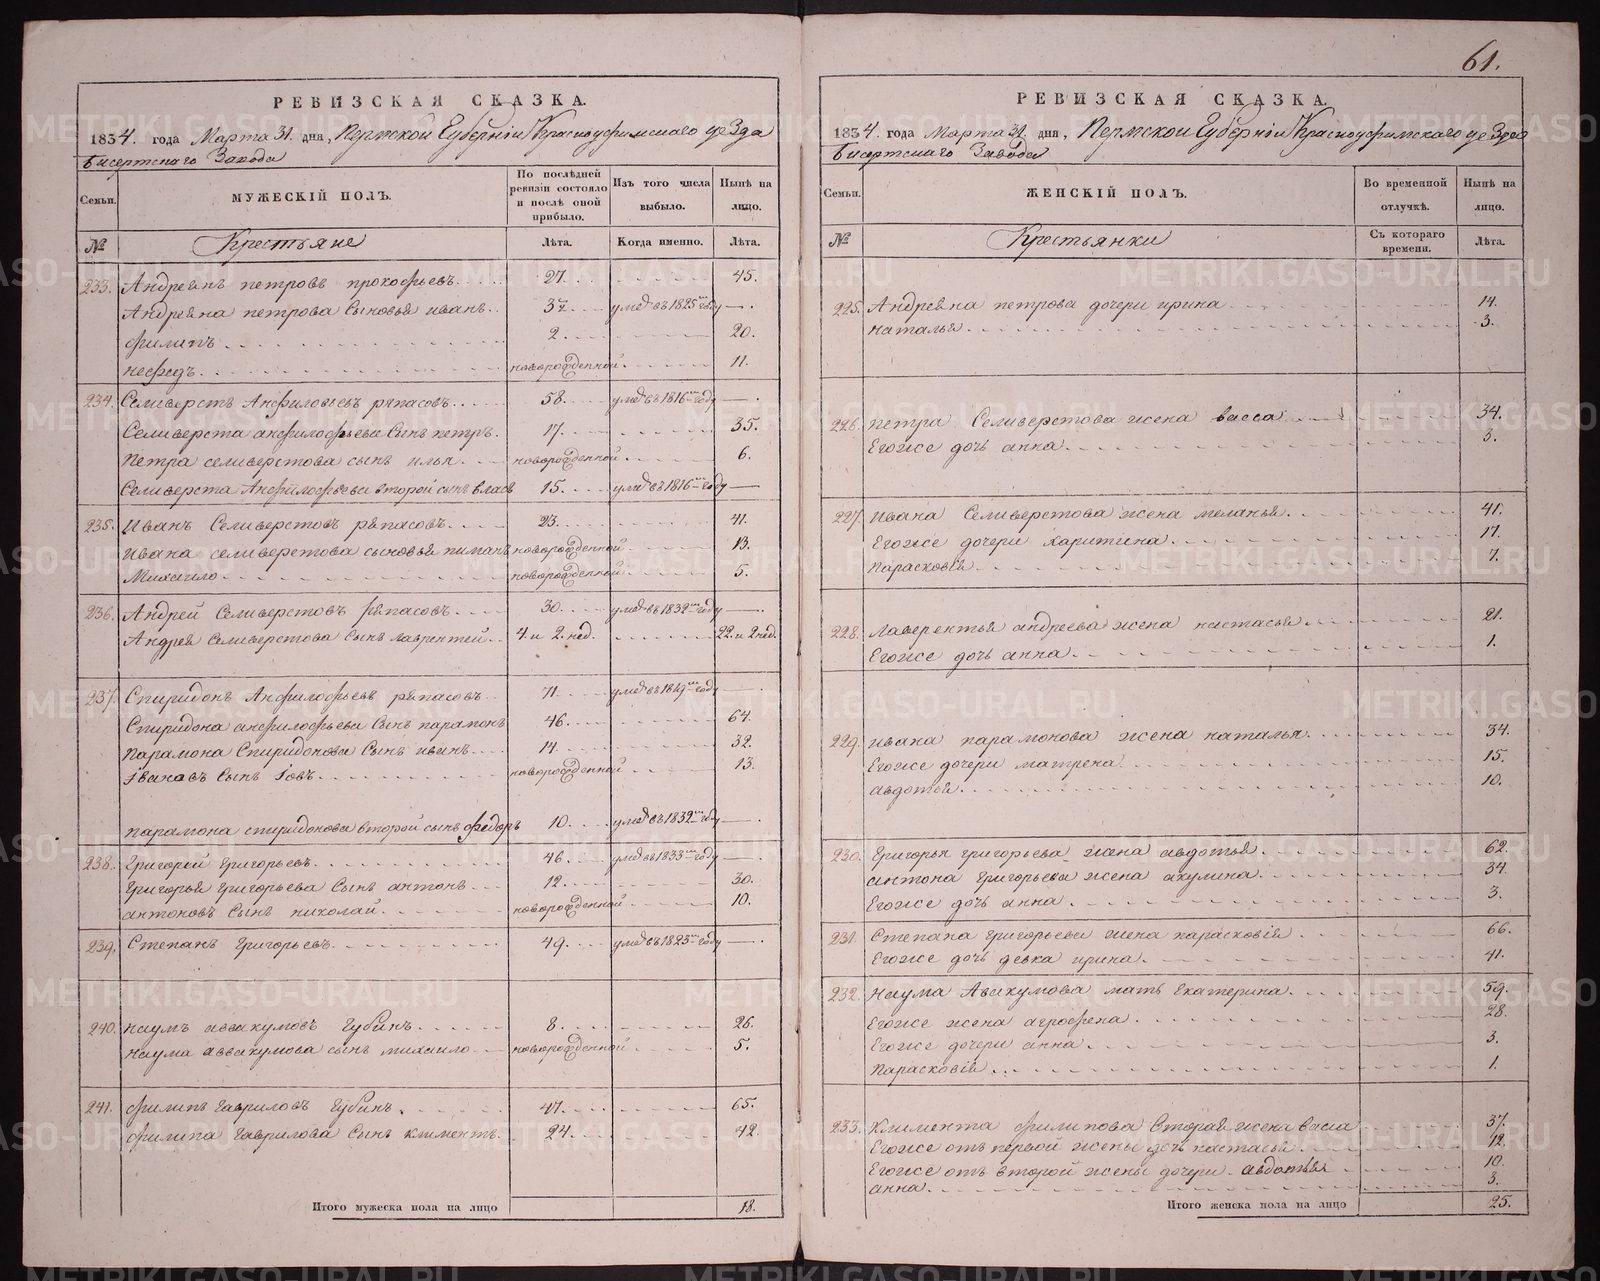 61.
РЕВИЗСКАЯ СКАЗКА.
1834. года Марта 31. дня, Пермской Губернiи Красноуфимскаго уезда
Бисертскаго Завода
Семьи. МУЖЕСКIЙ ПОЛЪ. По послѣдней ревизiи состояло и послѣ оной прибыло. Изъ того числа выбыло. Нынѣ на лицо.
№ Крестьяне Лѣта. Когда именно. Лѣта.
233. Андреянъ петровъ прокофьевъ 27. 45.
Андреяна петрова Сыновья иванъ 3 умеръ въ 1825 году
филипъ 2. 20.
нефедъ новорожденной 11.
234. Селиверстъ Анфилофьевъ ряпасовъ 58. умеръ въ 1816 году
Селиверста анфилофьева Сынъ петръ. 17. 35.
петра селиверстова сынъ илья новорожденной 6.
Селиверста Анфилофьева второй сынъ власъ 15. умеръ въ 1816 году
235. Иванъ Селиверстовъ ряпасовъ 23. 41.
Ивана селиверстова сыновья пиманъ новорожденной 13.
Михаило новорожденной 5.
236. Андрей Селиверстовъ ряпасовъ 30. умеръ въ 1832 году
Андрея Селиверстова Сынъ лаврентей 4. и 2. нед. 22. и 2 нед.
237. Спиридонъ Анфилофьевъ ряпасовъ 71. умеръ въ году
Спиридона анфилофьева Сынъ парамонъ 46. 64.
Парамона Спиридонова Сынъ иванъ 14. 32.
Iвановъ Сынъ Iовъ новорожденной 13.
парамона спиридонова второй сынъ федоръ 10. умеръ въ 1832 году
238. Григорей григорьевъ 46. умеръ въ 1833 году
Григорья григорьева Сынъ антонъ 12. 30.
антоновъ Сынъ николай новорожденной 10.
239. Степанъ григорьевъ 49. умеръ въ 1823 году
240. наумъ аввакумовъ Губинъ 8. 26.
наума аввакумова сынъ михаило новорожденной 5.
241. филипъ гавриловъ Губинъ 47. 65.
филипа гаврилова Сынъ климентъ 24. 42.
Итого мужеска пола на лицо 18.
РЕВИЗСКАЯ СКАЗКА.
1834. года Марта 31. дня, Пермской Губернiи Красноуфимскаго уезда
Бисертскаго Завода
Семьи. ЖЕНСКIЙ ПОЛЪ. Во временной отлучкѣ. Нынѣ на лицо.
№ Крестьянки Съ котораго времени. Лѣта.
225. Андреяна петрова дочери ирина 14.
наталья 3.
226. петра Селиверстова жена васса 34.
Егоже дочь анна 3.
227. ивана Селиверстова жена меланья 41.
Егоже дочери харитина 17.
Парасковiя 7.
228. лаверентья андреева жена настасья 21.
Егоже дочь анна 1.
229. ивана парамонова жена наталья 34.
Егоже дочери матрена 15.
авдотья 10.
230. Григорья григорьева жена авдотья 62.
антона григорьева жена акулина 34.
Егоже дочь анна 3.
231. Степана григорьева жена парасковiя 66.
Егоже дочь девка ирина 41.
232. Наума Авакумова мать Екатерина 59.
Егоже жена агрофена 28.
Егоже дочери анна 3.
Парасковiя 1.
233. Климента филипова вторая жена васса 37.
Егоже отъ первой жены дочь настасья 12.
Егоже отъ второй жены дочери авдотья 10.
анна 3.
Итого женска пола на лицо 25.
METRIKI.GASO-URAL.RU